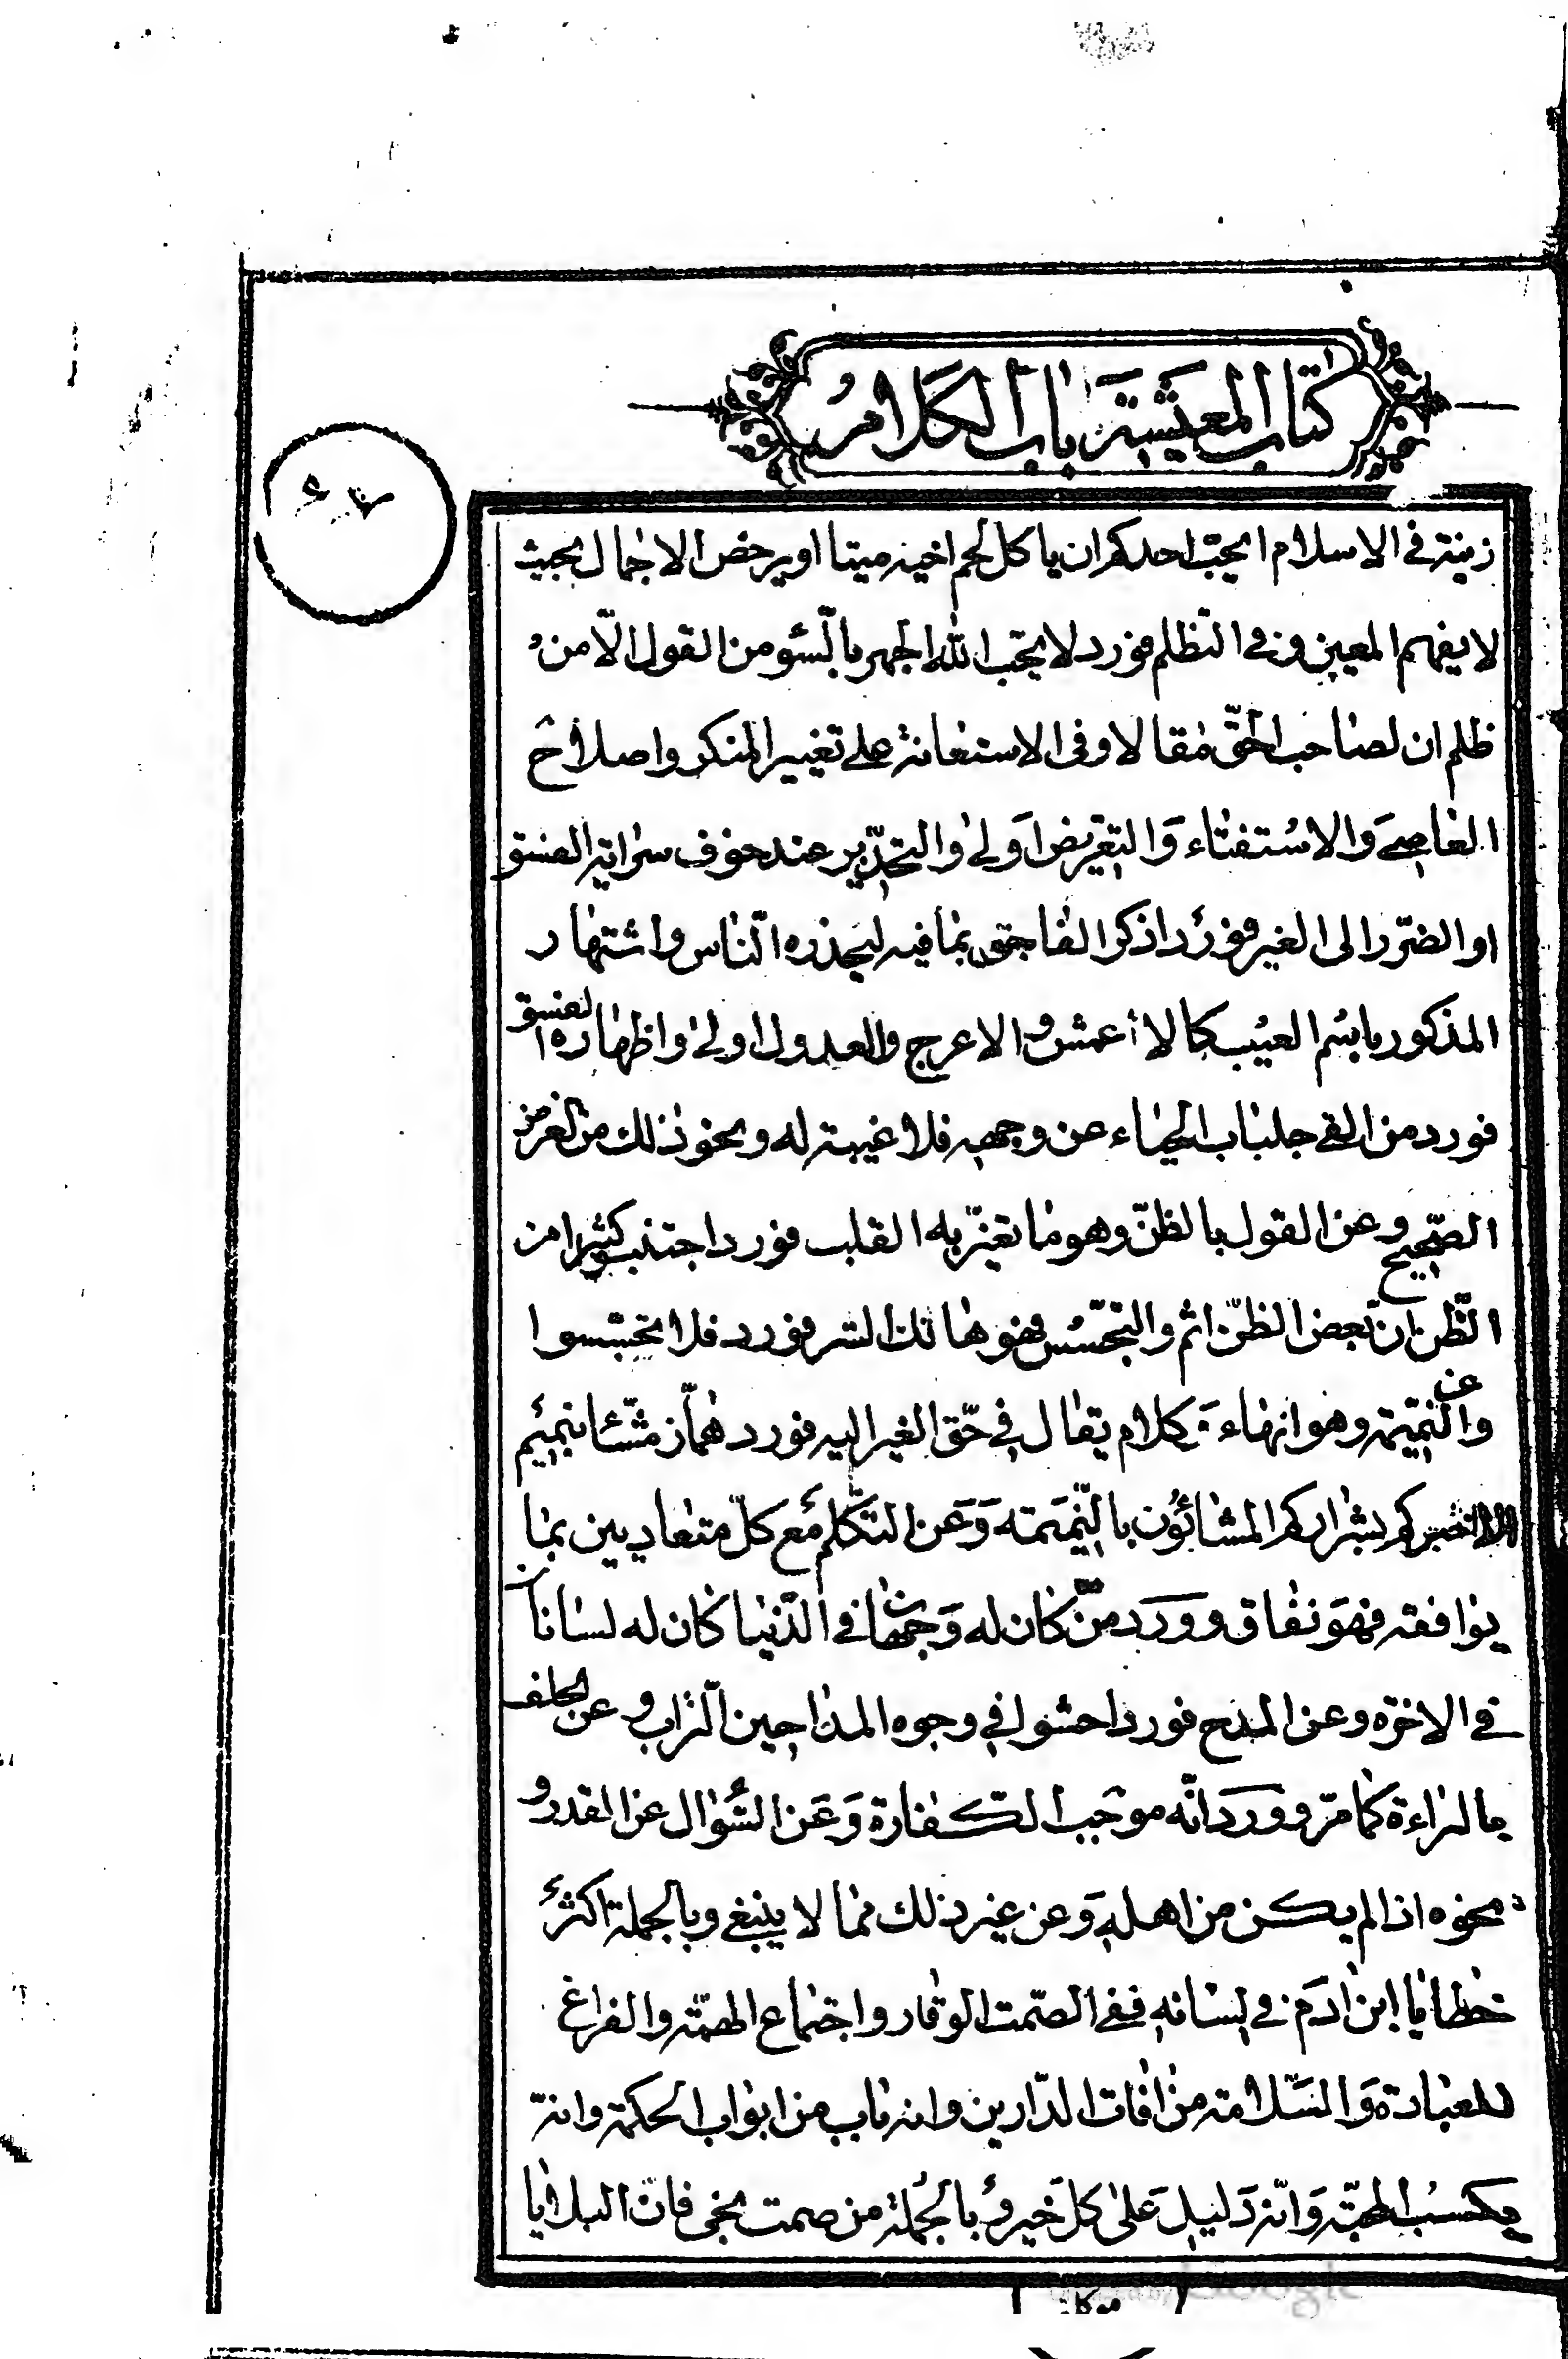 كتاب المعيشة باب الكلام
زينة في الاسلام ايحبّ احدكم ان ياكل لحم اخيه ميتا او يرخص الاجمال بحيث
لا يفهم المعين و في التظلم فورد لا يحّب الله الجهر بالّسّو من القول الّا من
ظلم ان لصاحب الحقّ مقالا و في الاستعانة على تغيير المنكر و اصلاح
العاصي وَ الاستفتاء وَ التعريض اَولى و التحذير عند خوف سراية الفسق
او الضرّر الى الغير فورد اذكرا الفاجر بما فيه ليحذره النّاس و اشتهار
المذكور باسم العيب كالاأعمش و الاعرج و العدول اولى و اظهاره الفسق
فورد من القى جلباب الحياء عن وجهه فلا غيبة له و نحو ذلك من الغرض
الصّحيح و عن القول بالظنّ و هو ما تغيّر به القلب فورد اجتنبو كثيرا من
الظّن ان بعض الظنّ اثم و التجسّس فهو هاتك الستر فورد فلا تجسّسوا
و عن النميّمة و هو انهاء كلام يقال في حقّ الغير اليه فورد همّاز مشّاء بنميم
الا اخبركم بشراركم المشائون بالنّميمة وَ عَن التّكلّم مع كلّ متعاديين بما
يوافقه فهوَ نفاق و ورَد من كان له وَجهان في الدّنيا كان له لسانان
في الاخرة و عن المدح فورد احثوا في وجوه المداحين التّراب و عن الحلف
بالبراءة كما مرّ و ورَد انّه موجَب الكفارة وَ عَن السّؤال عن القدر و
نحوه اذا لم يكن من اهله وَ عن غير ذلك ممّا لا ينبغي و بالجملة اكثر
خطايا ابن ادَم في لسانه ففي الصّمت الوقار و اجتماع الهمّة و الفراغ
للعبادة وَ السّلامة من افات الدّارين و انه باب من ابواب الحكمة و انه
يكسب المحبّة وَ انّه دَليل عَلى كلّ خير و بالجُملة من صمت نجى فانّ البلايا